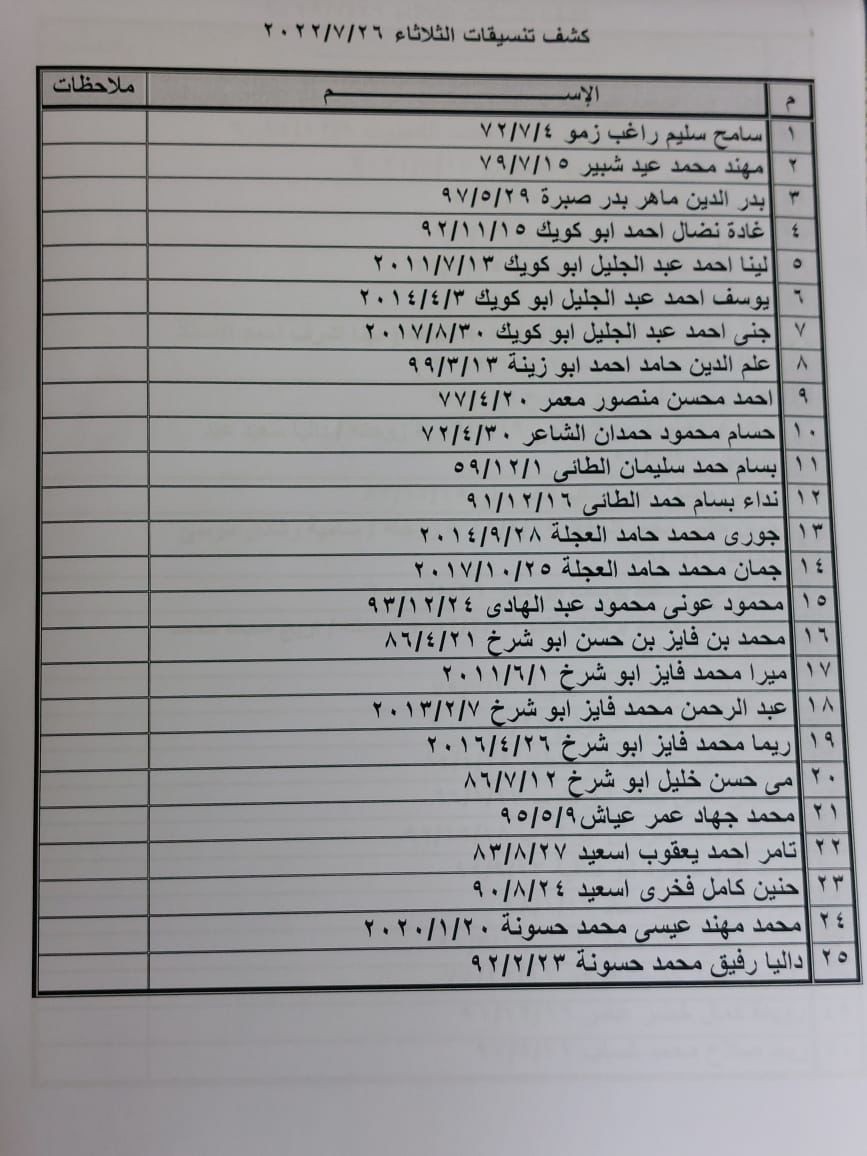 كشف تنسيقات الثلاثاء ٢٠٢٢/٧/٢٦
م الإســـــــــــم ملاحظات
١ سامح سليم راغب زمو ٧٢/٧/٤
٢ مهند محمد عيد شبير ٧٩/٧/١٥
٣ بدر الدين ماهر بدر صبرة ٩٧/٥/٢٩
٤ غادة نضال احمد ابو كويك ٩٢/١١/١٥
٥ لينا احمد عبد الجليل ابو كويك ٢٠١١/٧/١٣
٦ يوسف احمد عبد الجليل ابو كويك ٢٠١٤/٤/٣
٧ جنى احمد عبد الجليل ابو كويك ٢٠١٧/٨/٣٠
٨ علم الدين حامد احمد ابو زينة ٩٩/٣/١٣
٩ احمد محسن منصور معمر ٧٧/٤/٢٠
١٠ حسام محمود حمدان الشاعر ٧٢/٤/٣٠
١١ بسام حمد سليمان الطائى ٥٩/١٢/١
١٢ نداء بسام حمد الطائى ٩١/١٢/١٦
١٣ جورى محمد حامد العجلة ٢٠١٤/٩/٢٨
١٤ جمان محمد حامد العجلة ٢٠١٧/١٠/٢٥
١٥ محمود عونى محمود عبد الهادى ٩٣/١٢/٢٤
١٦ محمد بن فايز بن حسن ابو شرخ ٨٦/٤/٢١
١٧ ميرا محمد فايز ابو شرخ ٢٠١١/٦/١
١٨ عبد الرحمن محمد فايز ابو شرخ ٢٠١٣/٢/٧
١٩ ريما محمد فايز ابو شرخ ٢٠١٦/٤/٢٦
٢٠ مى حسن خليل ابو شرخ ٨٦/٧/١٢
٢١ محمد جهاد عمر عياش٩٥/٥/٩
٢٢ تامر احمد يعقوب اسعيد ٨٣/٨/٢٧
٢٣ حنين كامل فخرى اسعيد ٩٠/٨/٢٤
٢٤ محمد مهند عيسى محمد حسونة ٢٠٢٠/١/٢٠
٢٥ داليا رفيق محمد حسونة ٩٢/٢/٢٣